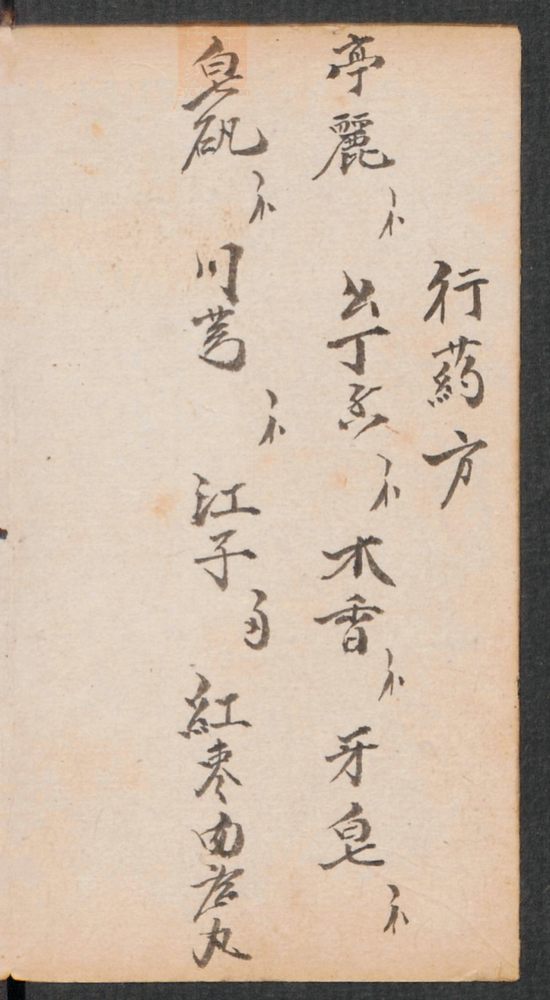 行药方
亭麗 公丁香 木香 牙皂
皂矾 川芎 江子 紅枣肉為丸